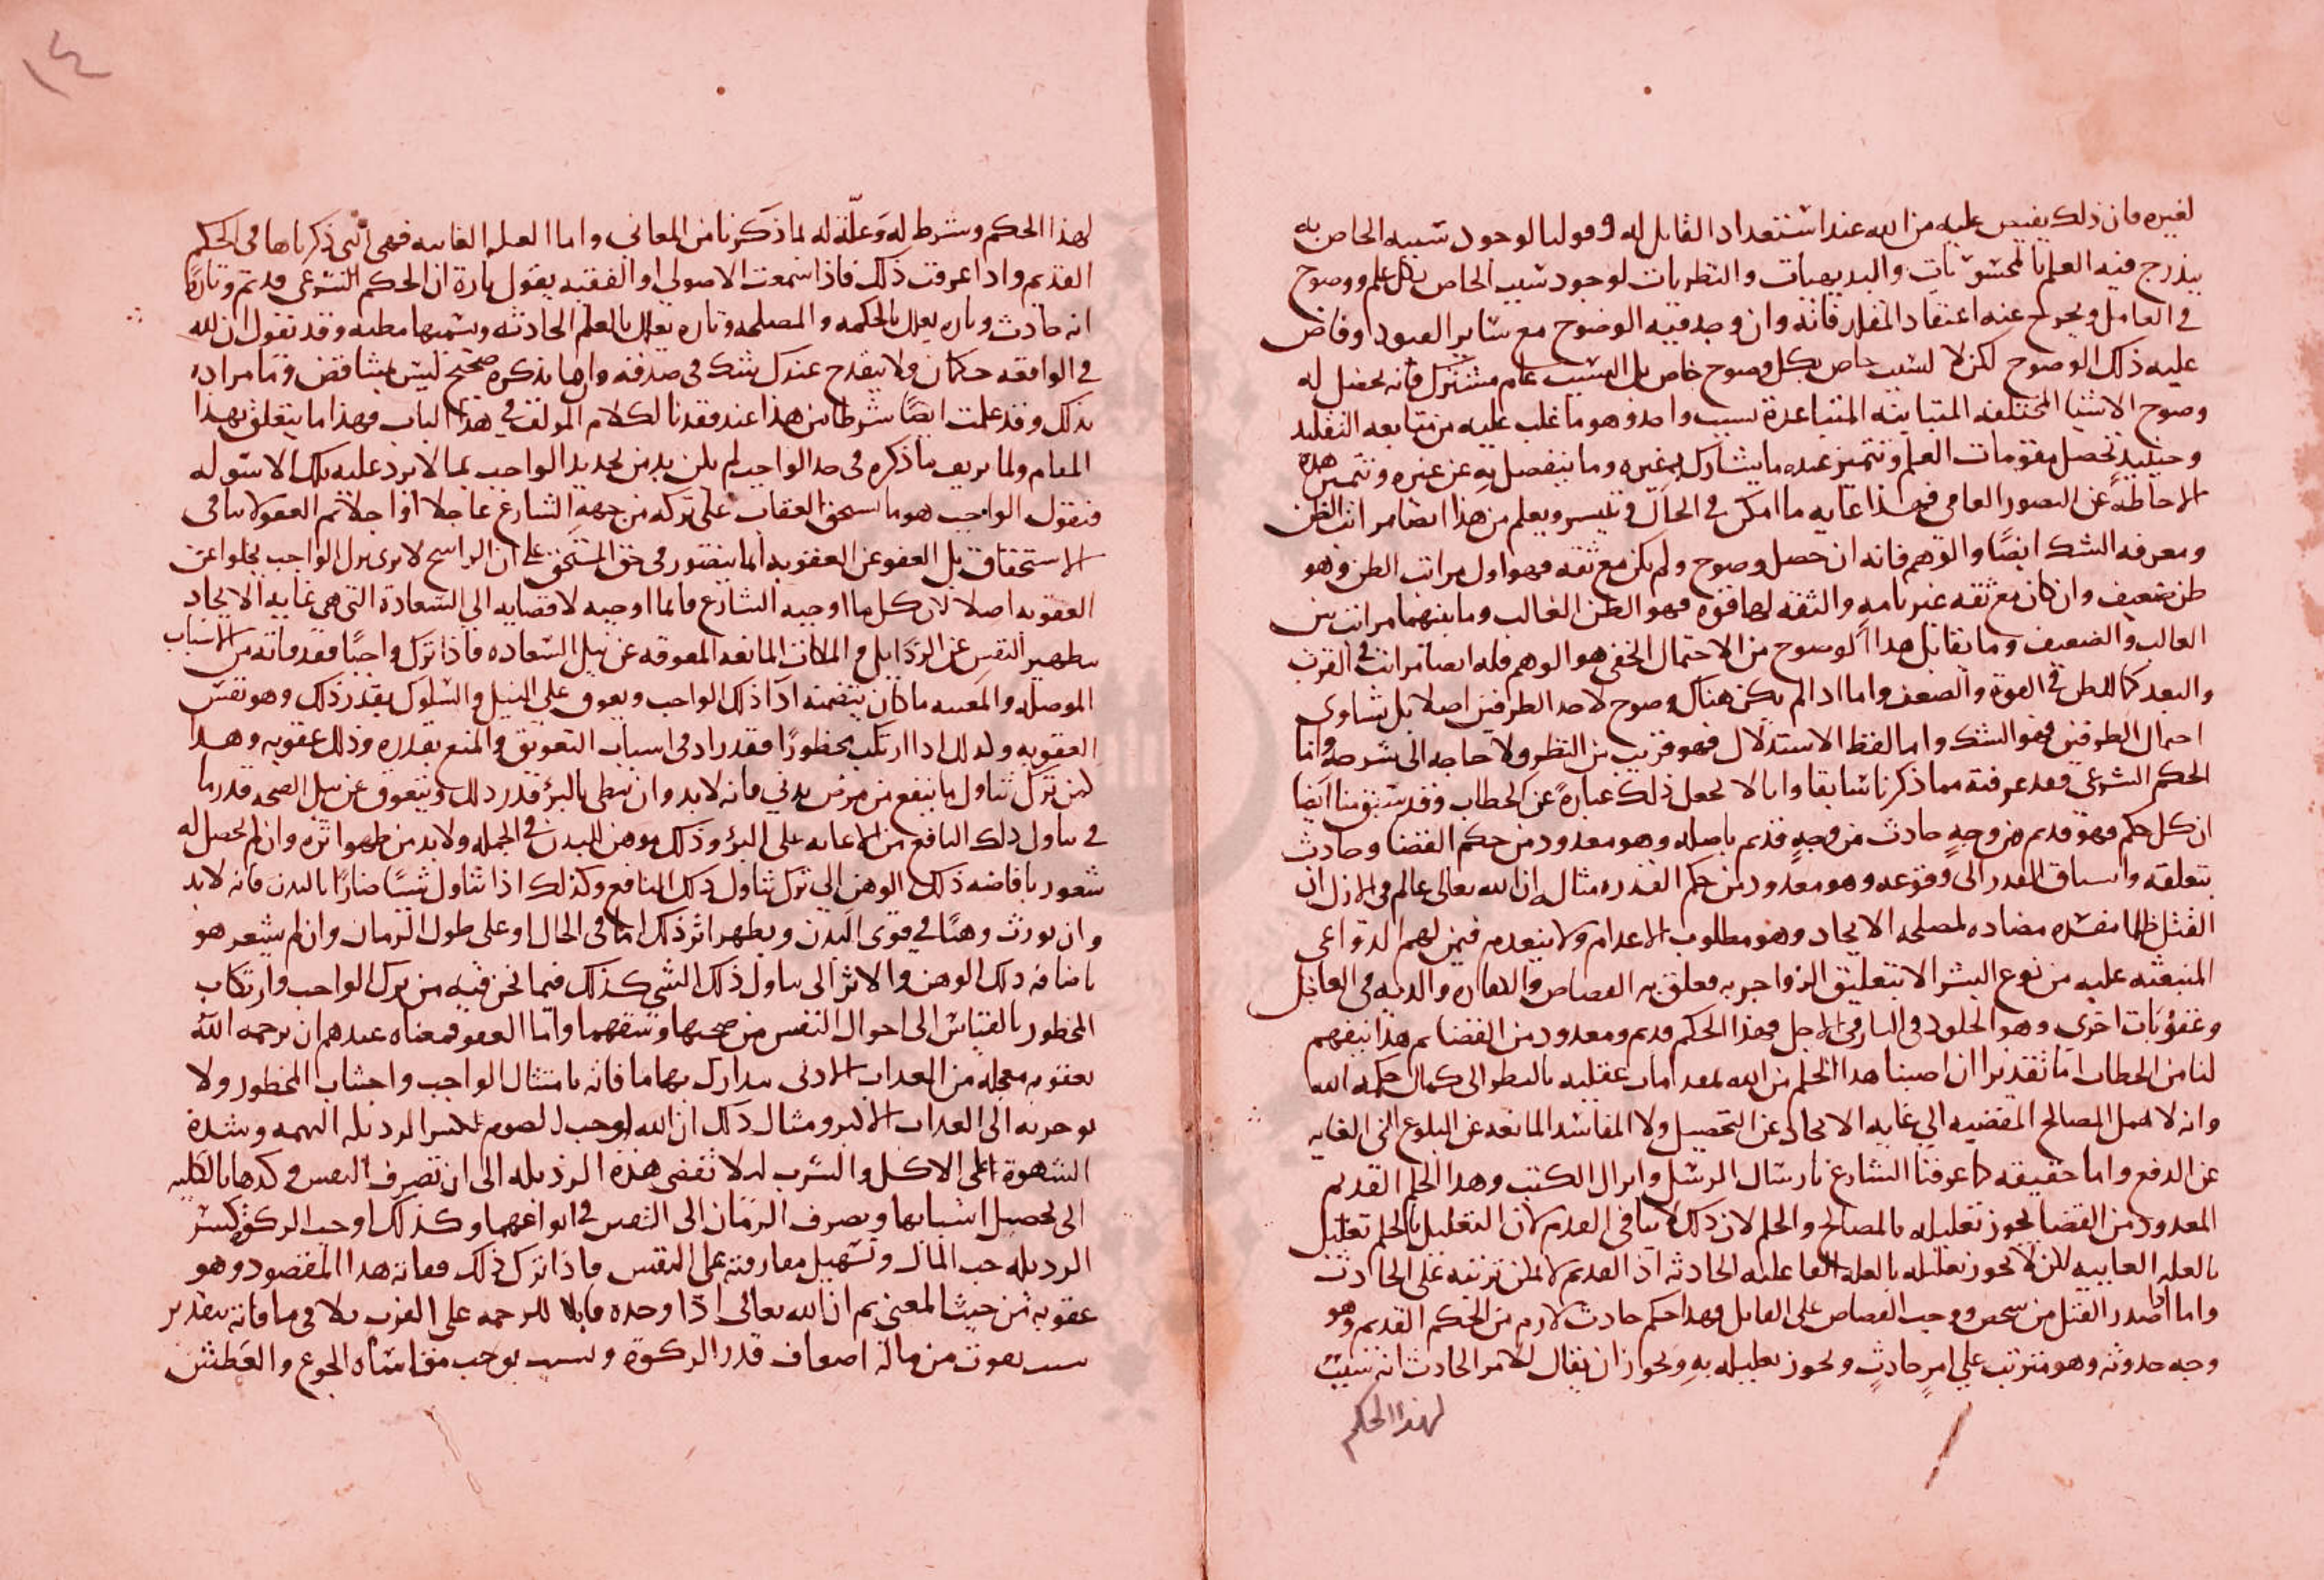 لغيره فان ذلك يفيض عليه من الله عند استعداد القابل له وقولنا لوجود سببه الخاص به
يندرج فيه العلم بالمحسوسات والبديهيات والنظريات لوجود سبب الخاص بكل علم ووضوح
في العامل ويخرج عنه اعتقاد المقلد فانه وان وجد فيه الوضوح مع ساير القيود وفاض
عليه ذلك الوضوح لكن لا لسبب خاص بكل وضوح خاص بل السبب عام مشترك فانه يحصل له
وضوح الاشيا المختلفه المتباينه المتباعدة بسبب واحد وهو ما غلب عليه من متابعه التقليد
وحينيذ تحصل مقومات العلم وتتميز عنده ما يشارك به غيره وما ينفصل به عن غيره وتتميز هذه
الاحاطة عن التصور العامي فهذا غايه ما امكن في الحال وتيسر ويعلم من هذا ايضا مراتب الظن
ومعرفه الشك ايضًا والوهم فانه ان حصل وضوح ولم يكن مع ثقه فهو اول مراتب الظن وهو
ظن ضعيف وان كان مع ثقه غير تامه والثقه لها قوه فهو الظن الغالب وما بينهما مراتب بين
الغالب والضعيف وما يقابل هذا الوضوح من الاحتمال الخفي هو الوهم فله ايضا مراتب في القرب
والبعد كما للظن في القوة والضعف واما اذا لم يكن هناك وضوح لاحد الطرفين اصلا بل يتساوى
احتمال الطرفين فهو الشك واما لفظ الاستدلال فهو قريب من النظر ولا حاجه الى شرحه واما
الحكم الشرعي فقد عرفته مما ذكرنا سابقا وانا لا نجعل ذلك عبارةً عن الخطاب وقد سبق منا ايضا
ان كل حكم فهو قديم من وجهٍ حادث من وجهٍ قديم باصله وهو معدود من حكم القضا وحادث
بتعلقه وانسياق القدر الى وقوعه وهو معدود من حكم القدر مثاله ان الله تعالى عالم في الازل ان
القتل ظلما مفسده مضاده لمصلحه الايجاد وهو مطلوب الاعدام ولا ينعدم فيمن لهم الدواعي
المنبعثه عليه من نوع البشر الا بتعليق الزواجر به فعلق به القصاص والكفاره والديه في العاجل
وعقوبات اخرى وهو الخلود في النار في الاجل فهذا الحكم قديم ومعدود من القضا ثم هذا بتفهم
لنا من الخطاب اما تقديرا ان اصبنا هذا الحكم من الله بمقدمات عقليه بالنظر الى كمال حكمه الله
وانه لا يهمل المصالح المفضيه الى غايه الايجاد عن التحصيل ولا المفاسد المانعه عن البلوغ الى الغايه
عن الدفع واما حقيقه كما عرفنا الشارع بارسال الرسل وانزال الكتب وهذا الحكم القديم
المعدود من القضا يجوز تعليله بالمصالح والحكم لان ذلك لا ينافي القدم لان التعليل بالحكم تعليل
بالعله الغاييه لكن لا يجوز تعليله بالعله الفاعليه الحادثه اذ القديم لا يمكن ترتيبه على الحادث
واما اذا صدر القتل من شخص ووجب القصاص على القاتل فهذا حكم حادث لازم من الحكم القديم وهو
وجه حدوثه وهو مترتب على امرٍ حادثٍ ويجوز تعليله به ويجوز ان يقال للامر الحادث انه سبب
لهذا الحكم
١٤
لهذا الحكم وشرط له وعلّة له لما ذكرنا من المعاني واما العله الغاييه فهي التي ذكرناها في الحكم
القديم واذا عرفت ذلك فاذا سمعت الاصولي او الفقيه يقول تارة ان الحكم الشرعي قديم وتارةً
انه حادث وتاره يعلل بالحكمه والمصلحه وتاره يعلل بالعلل الحادثه ويسميها مظنه وقد تقول ان لله
في الواقعه حكمان ولا يقدح عندك شك في صدقه وان ما يذكره صحيح ليس بتناقض وما مراده
بذلك وقد علمت ايضًا شرطا من هذا عند فقدنا لكلام المولف في هذا الباب فهذا ما يتعلق بهذا
المقام ولما تزيف ما ذكره في حد الواجب لم يكن بد من تحديد الواجب بما لا يرد عليه تلك الاسوله
فنقول الواجب هو ما استحق العقاب على تركه من جهة الشارع عاجلا او اجلا ثم العفو لا ينافي
الاستحقاق بل العفو عن العقوبه انما يتصور في حق المستحق على ان الراسخ لا يرى ترك الواجب يخلوا عن
العقوبه اصلا لان كل ما اوجبه الشارع فانما اوجبه لافضايه الى السعادة التي هي غايه الايجاد
بتطهير النفس عن الرذايل والملكات المانعه المعوقه عن نيل السعاده فاذا ترك واجبًا فقد فاته من الاسباب
الموصله والمعينه ما كان يتضمنه اداء ذلك الواجب ويعوق على النيل والسلوك بقدر ذلك وهو نفس
العقوبه وكذلك اذا ارتكب محظورًا فقد زاد في اسباب التعويق والمنع بقدره وذلك عقوبه وهذا
كمن ترك تناول ما ينفع من مرض بدني فانه لابد وان يبطي بالبرؤ قدر ذلك ويتعوق عن نيل الصحه قدر ما
في تناول ذلك النافع من الاعانه على البرؤ وذلك موهن للبدن في الجمله ولابد من ظهور اثره وان لم يحصل له
شعور باضافه ذلك الوهن الى ترك تناول ذلك النافع وكذلك اذا تناول شيًا ضارًا بالبدن فانه لابد
وان يورث وهنًا في قوى البدن ويظهر اثر ذلك اما في الحال او على طول الزمان وان لم يشعر هو
باضافه ذلك الوهن والاثر الى تناول ذلك الشي كذلك فيما نحن فيه من ترك الواجب وارتكاب
المحظور بالقياس الى احوال النفس من صحتها وسقمها واما العفو فمعناه عندهم ان يرحمه الله
بعقوبه معجله من العذاب الادنى يتدارك بها ما فاته بامتثال الواجب واجتناب المحظور ولا
يوخر به الى العذاب الاكبر ومثال ذلك ان الله اوجب الصوم لكسر الرذيله النهمه وشدة
الشهوة على الاكل والشرب ليلا تفضي هذه الرذيله الى ان تصرف النفس وكدها بالكليه
الى تحصيل اسبابها وبصرف الزمان الى التفنن في انواعهما وكذلك اوجب الزكوة لكسر
الرذيله حب المال وتسهيل مفارقته على النفس فاذا ترك ذلك ففاته هذا المقصود وهو
عقوبه من حيث المعنى ثم ان الله تعالى اذا وجده قابلا للرحمه على القرب تلافى ما فاته بتقدير
سبب يفوت من ماله اضعاف قدر الزكوة وسبب يوجب مقاساه الجوع والعطش